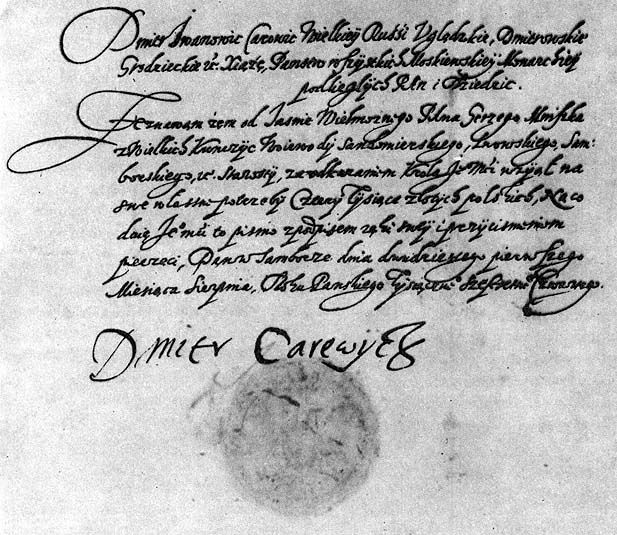 Dmitr Iwanowic Carowic Wielkiey Russi Uglądzkie, Dmitrowskie
Grodzieckie etc. Xiążę, Państw wszystkich Moskiewskiey Monarchiey
podległych Pan i Dziedzic.
Zeznawam żem od Jasnie Wielmożnego Pana Gerzego Mniszka
z Wielkich Kunczyc Woiewody Sandomierskiego, Lwowskiego, Sam-
borskiego, etc. Starosty, za wskazaniem Króla Je Mći wziął na
swe własne potrzeby Cztery Tysiąca złotych polskich, Na co
daię Jemu to pismo z podpisem ręki swey i przyciśnieniem
pieczęci, Dan w Samborze dnia dwudziestego pierwszego
Miesiąca Sierpnia, Roku Panskiego Tysiącnego Szesetnego Czwartego.
Dmitr Carewycz